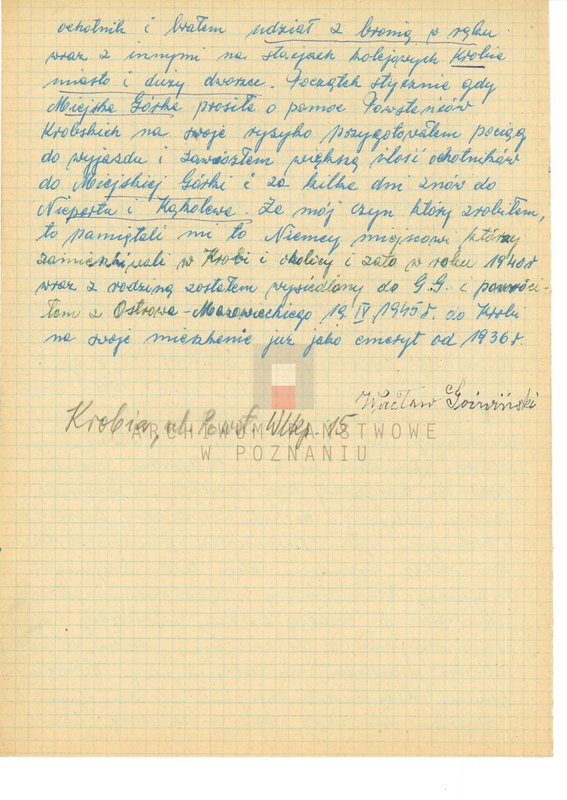 ochotnik i brałem udział z bronią w ręku
wraz z innymi na stacjach kolejowych Krobia
miasto i duży dworzec. Początek stycznia gdy
Miejska Górka prosiła o pomoc Powstańców
Krobskich na swoje ryzyko przygotowałem pociąg
do wyjazdu i zawiozłem większą ilość ochotników
do Miejskiej Górki i za kilka dni znów do
i Kąkolewa Za mój czyn który zrobiłem,
to pamiętali mi to Niemcy miejscowi którzy
zamieszkiwali w Krobi i okolicy i zato w roku 1940 r
wraz z rodziną zostałem wysiedlony do G.G. i powróci-
łem z Ostrowa-Mazowieckiego 19. IV 1945 r. do Krobi
na swoje mieszkanie już jako emeryt od 1936 r.
Wacław
Krobia, ul. Powst. Wlkp. 15
ARCHIWUM PAŃSTWOWE
W POZNANIU